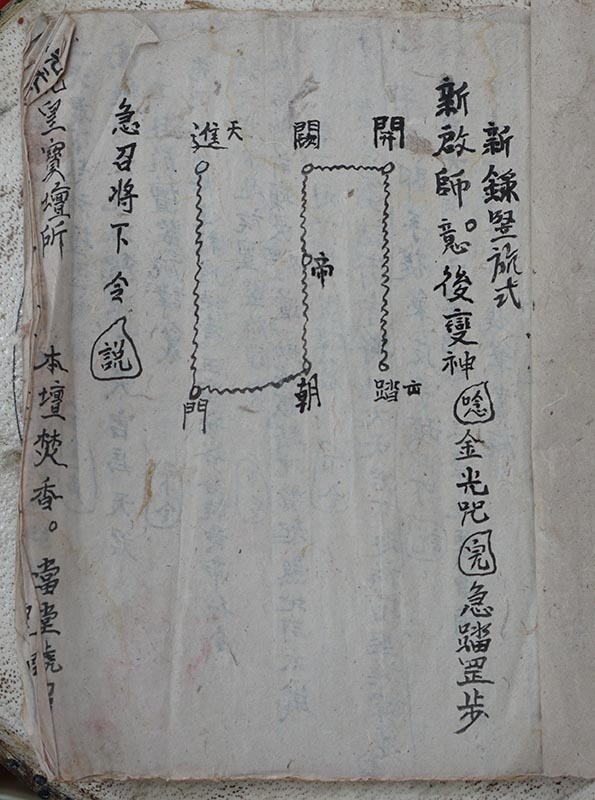 新錄竪旂式
新啟師。意後變神唸金光咒完急踏罡步
開
闕
天
進
帝
踏
朝
門
急召將下令說
皇寶壇所
本壇焚香。當堂